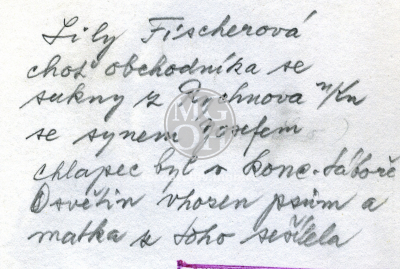 Lily Fischerová
choť obchodníka se
sukny z Rychnova n/Kn
se synem Josefem
chlapec byl v konc. táboře
Osvětin vhozen psům a
matka z toho sešílela